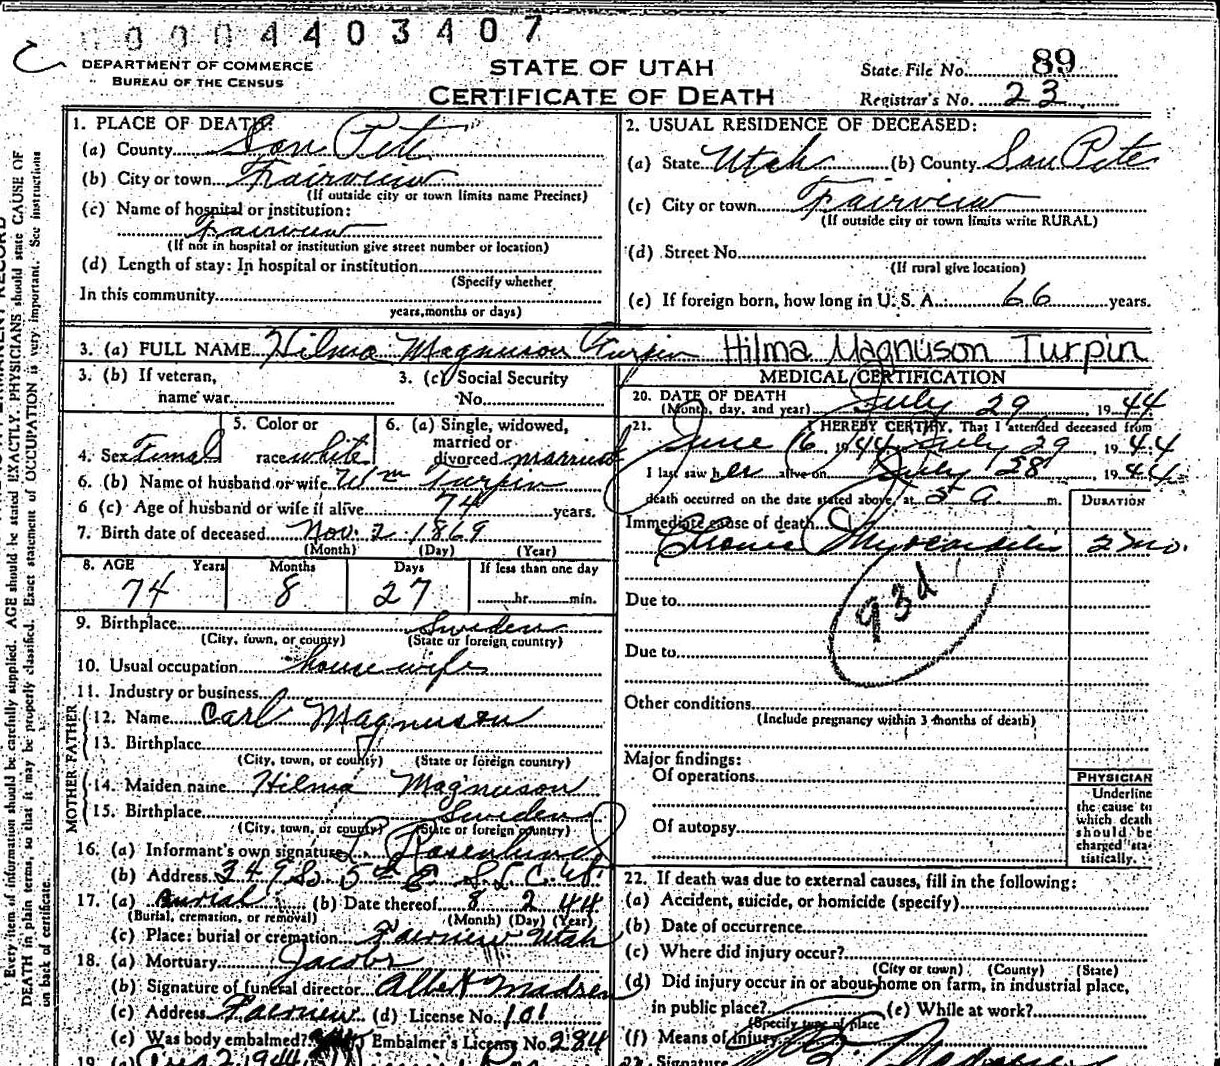 00004403407
DEPARTMENT OF COMMERCE
BUREAU OF THE CENSUS
STATE OF UTAH
CERTIFICATE OF DEATH
State File No. 89
Registrar's No. 23
1. PLACE OF DEATH:
(a) County San Pete
(b) City or town Fairview
(If outside city or town limits name Precinct)
(c) Name of hospital or institution:
Fairview
(If not in hospital or institution give street number or location)
(d) Length of stay: In hospital or institution
(Specify whether
In this community
years, months or days)
2. USUAL RESIDENCE OF DECEASED:
(a) State Utah (b) County San Pete
(c) City or town Fairview
(If outside city or town limits write RURAL)
(d) Street No.
(If rural give location)
(e) If foreign born, how long in U. S. A.: 66 years.
3. (a) FULL NAME Hilma Magnuson Turpin Hilma Magnuson Turpin
3. (b) If veteran,
name war
3. (c) Social Security
No.
4. Sex Femal
5. Color or
race white
6. (a) Single, widowed,
married or
divorced married
6. (b) Name of husband or wife Wm Turpin
6 (c) Age of husband or wife if alive 74 years.
7. Birth date of deceased Nov. 2 1869
(Month) (Day) (Year)
8. AGE Years Months Days If less than one day
74 8 27 hr. min.
9. Birthplace Sweden
(City, town, or county) (State or foreign country)
10. Usual occupation house wife
11. Industry or business
FATHER
12. Name Carl Magnuson
13. Birthplace
(City, town, or county) (State or foreign country)
MOTHER
14. Maiden name Hilma Magnuson
15. Birthplace Sweden
(City, town, or county) (State or foreign country)
16. (a) Informant's own signature Rosenlund
(b) Address 249 So 5th E S L C. Ut.
17. (a) Burial (b) Date thereof 8 2 44
(Burial, cremation, or removal) (Month) (Day) (Year)
(c) Place: burial or cremation Fairview Utah
18. (a) Mortuary Jacobs
(b) Signature of funeral director Albert Madsen
(c) Address Fairview (d) License No. 101
(e) Was body embalmed? Embalmer's License No. 284
19. (a) Aug 2, 1944
MEDICAL CERTIFICATION
20. DATE OF DEATH
(Month, day, and year) July 29, 1944
21. I HEREBY CERTIFY, That I attended deceased from
June 16, 1944 July 29 1944
I last saw her alive on July 28 1944
death occurred on the date stated above, at 5 a m.
DURATION
Immediate cause of death
Chronic Myocarditis 2 mo.
93d
Due to
Due to
Other conditions
(Include pregnancy within 3 months of death)
Major findings:
Of operations
Of autopsy
PHYSICIAN
Underline
the cause to
which death
should be
charged sta-
tistically.
22. If death was due to external causes, fill in the following:
(a) Accident, suicide, or homicide (specify)
(b) Date of occurrence
(c) Where did injury occur?
(City or town) (County) (State)
(d) Did injury occur in or about home on farm, in industrial place,
in public place? (e) While at work?
(Specify type of place
(f) Means of injury
23. Signature
PERMANENT RECORD
Every item of information should be carefully supplied. AGE should be stated EXACTLY. PHYSICIANS should state CAUSE OF
DEATH in plain terms, so that it may be properly classified. Exact statement of OCCUPATION is very important. See instructions
on back of certificate.